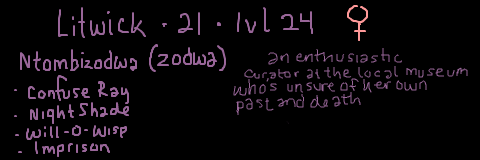 Litwick · 21 · lvl 24 ♀
Ntombizodwa (zodwa)
· Confuse Ray
· Night Shade
· Will-O-Wisp
· Imprison
an enthusiastic
curator at the local museum
who's unsure of her own
past and death